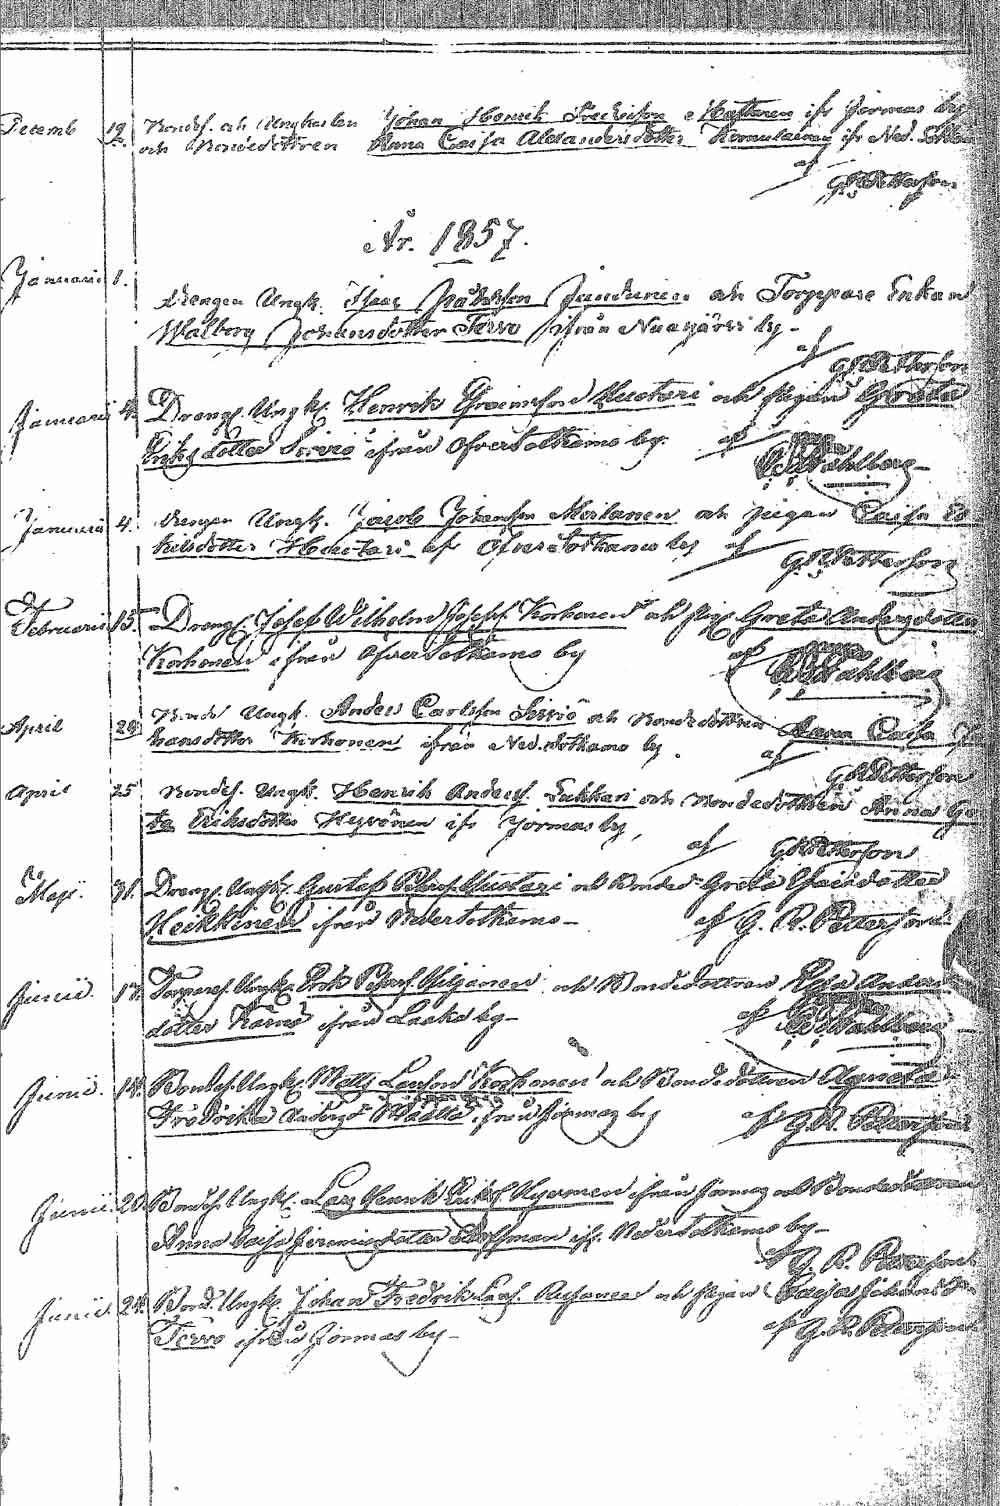 Decemb 19. Bondes. och Ungkarlen Johan Henrik Fredrikson Huttunen ifr Jormas by
och Bondedottren Anna Caisa Alexandersdotter Komulainen ifr Ned.
af G.R. Petterson
År. 1857.
Januarii 1.
Drengen Ungk. Isaac Juntunen och Torppare Enkan
Walborg Johansdotter Tervo ifrån Naapurinvaara by
af G.R. Petterson
Januarii 4. Drengs. Ungk. Henrik Mustari och pigan Greta
Eriksdotter Servio ifrån Öfversotkamo by.
af Wahlberg
Januarii 4. Drengen Ungk. Jacob Johansson Moilanen och pigan Caisa
Huctari af Öfversotkamo by af G.R. Petterson
Februarii 15. Dreng. Josef Wilhelm Josefs. Korhonen och pig. Greta Andersdotter
Korhonen ifrån Öfversotkamo by af Wahlberg
April 24 Bondes. Ungk. Anders Carlsson Servio och Bondedottren Anna Caisa Jo
hansdotter Korhonen ifrån Ned.sotkamo by. af
G.R. Petterson
April 25 Bondes. Ungk. Henrik Anders. Tukkari och Bondedottren Anna Gre
ta Eriksdotter Hyvönen ifr Jormas by,
af G.R. Petterson
Maji 31. Drengs. Ungk. Gustaf Mustari och Bonded. Greta
Heikkinen ifrån Nedersotkamo af G. R. Petterson
Junii. 17. Torpares. Ungk. Erik Peters. Miljanen och Bondedottren Anders
dotter Kärnä ifrån Laaka by af Wahlberg
Junii. 14. Bondes. Ungk. Matts Larsson Korhonen och Bondedottren Agneta
Fredrika Anders d. Määttä, från Jormas by af G.R. Petterson
Junii. 20. Bondes. Ungk. Lars Henrik Eriks. Hyvönen ifrån Jormas och Bondedottren
Anna Caisa Jeremiasdotter ifr. Nedersotkamo by
af G. R. Petterson
Junii. 24. Bond. Ungk. Johan Fredrik Lars. och pigan Caisa Johans D.
Tervo ifrån Jormas by af G.R. Petterson